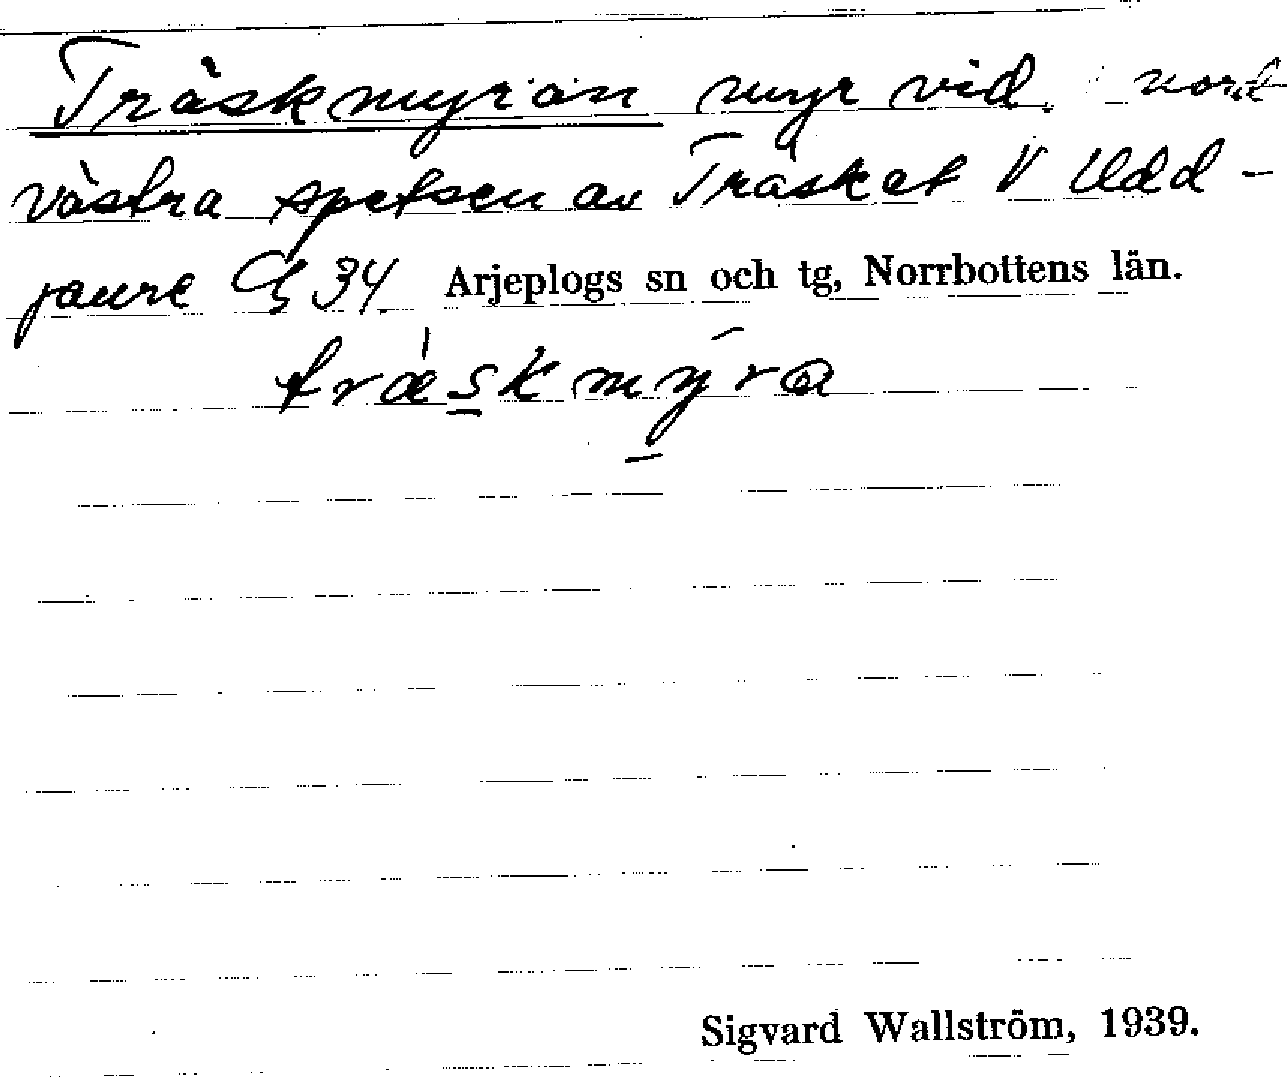 Träskmyran myr vid nord
västra spetsen av Träsket V Udd-
jaure G 34 Arjeplogs sn och tg, Norrbottens län.
træskmyra
Sigvard Wallström, 1939.